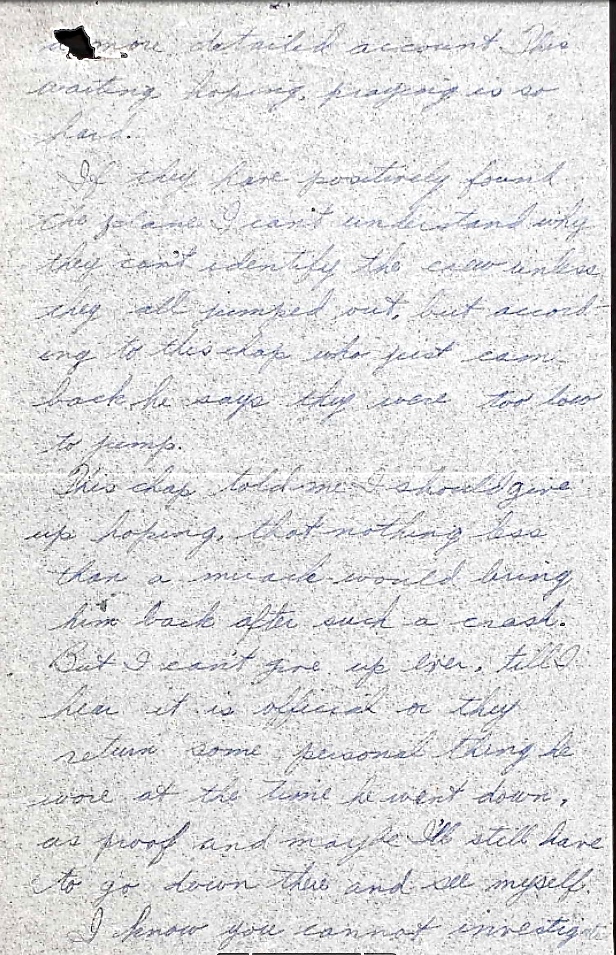 a more detailed account. This
waiting, hoping, praying is so
hard.
If they have positively found
the plane I can't understand why
they can't identify the crew unless
they all jumped out, but accord-
ing to this chap who just came
back he says they were too low
to jump.
This chap told me I should give
up hoping, that nothing less
than a miracle would bring
him back after such a crash.
But I can't give up ever, till I
hear it is official or they
return some personal thing he
wore at the time he went down,
as proof and maybe I'll still have
to go down there and see myself.
I know you cannot investigate